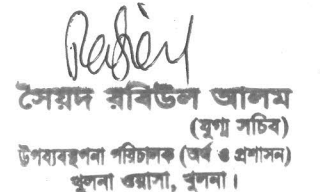 সৈয়দ রবিউল আলম
(যুগ্ম সচিব)
উপব্যবস্থপনা পরিচালক (অর্থ ও প্রশাসন)
খুলনা ওয়াসা, খুলনা।